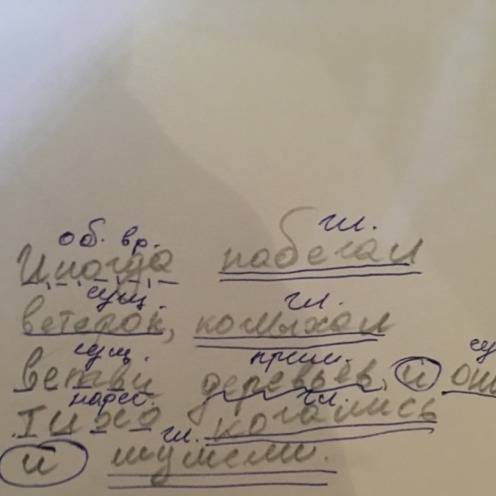 об. вр. гл.
Иногда набегал
сущ. гл.
ветерок, колыхал
сущ. прил.
ветви деревьев, и они
нареч. гл.
Тихо качались
гл.
и шумели.